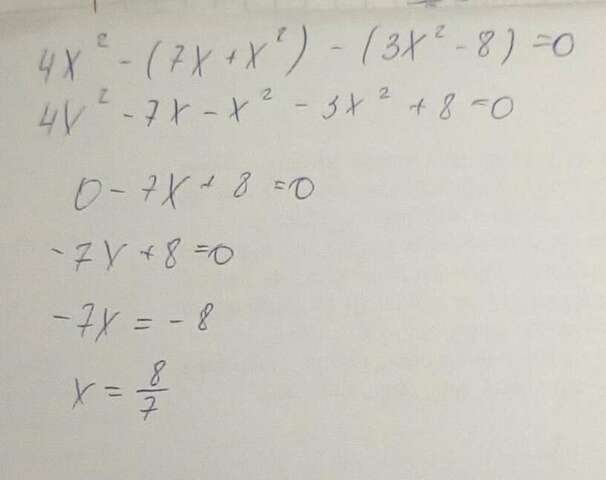 4x² - (7x + x²) - (3x² - 8) = 0
4x² - 7x - x² - 3x² + 8 = 0
0 - 7x + 8 = 0
-7x + 8 = 0
-7x = -8
x = 8/7